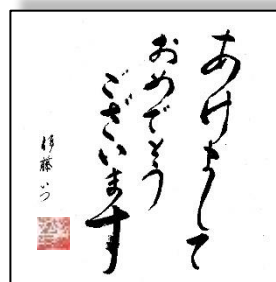 あけまして
おめでとう
ございます
伊藤